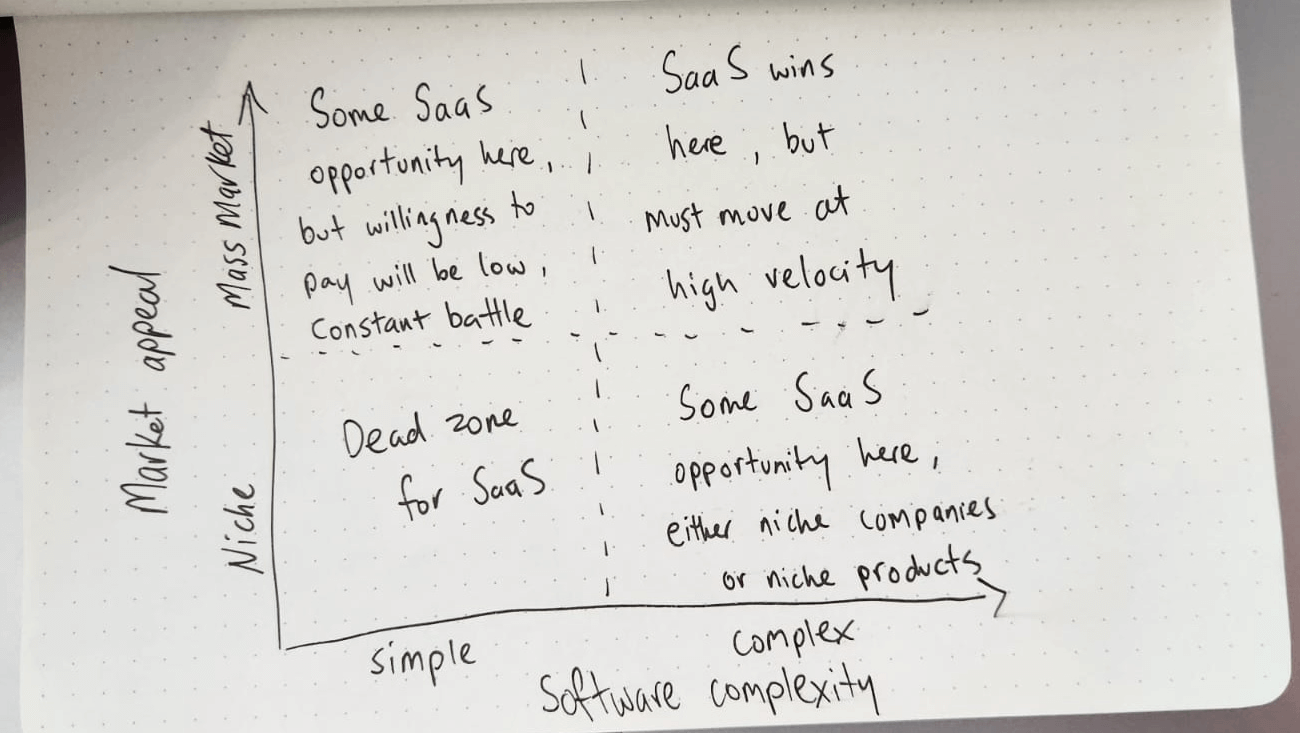 Market appeal
Mass Market
Niche
Some SaaS
opportunity here,
but willingness to
pay will be low,
Constant battle
SaaS wins
here, but
must move at
high velocity
Dead zone
for SaaS
Some SaaS
opportunity here,
either niche companies
or niche products
simple
complex
Software complexity